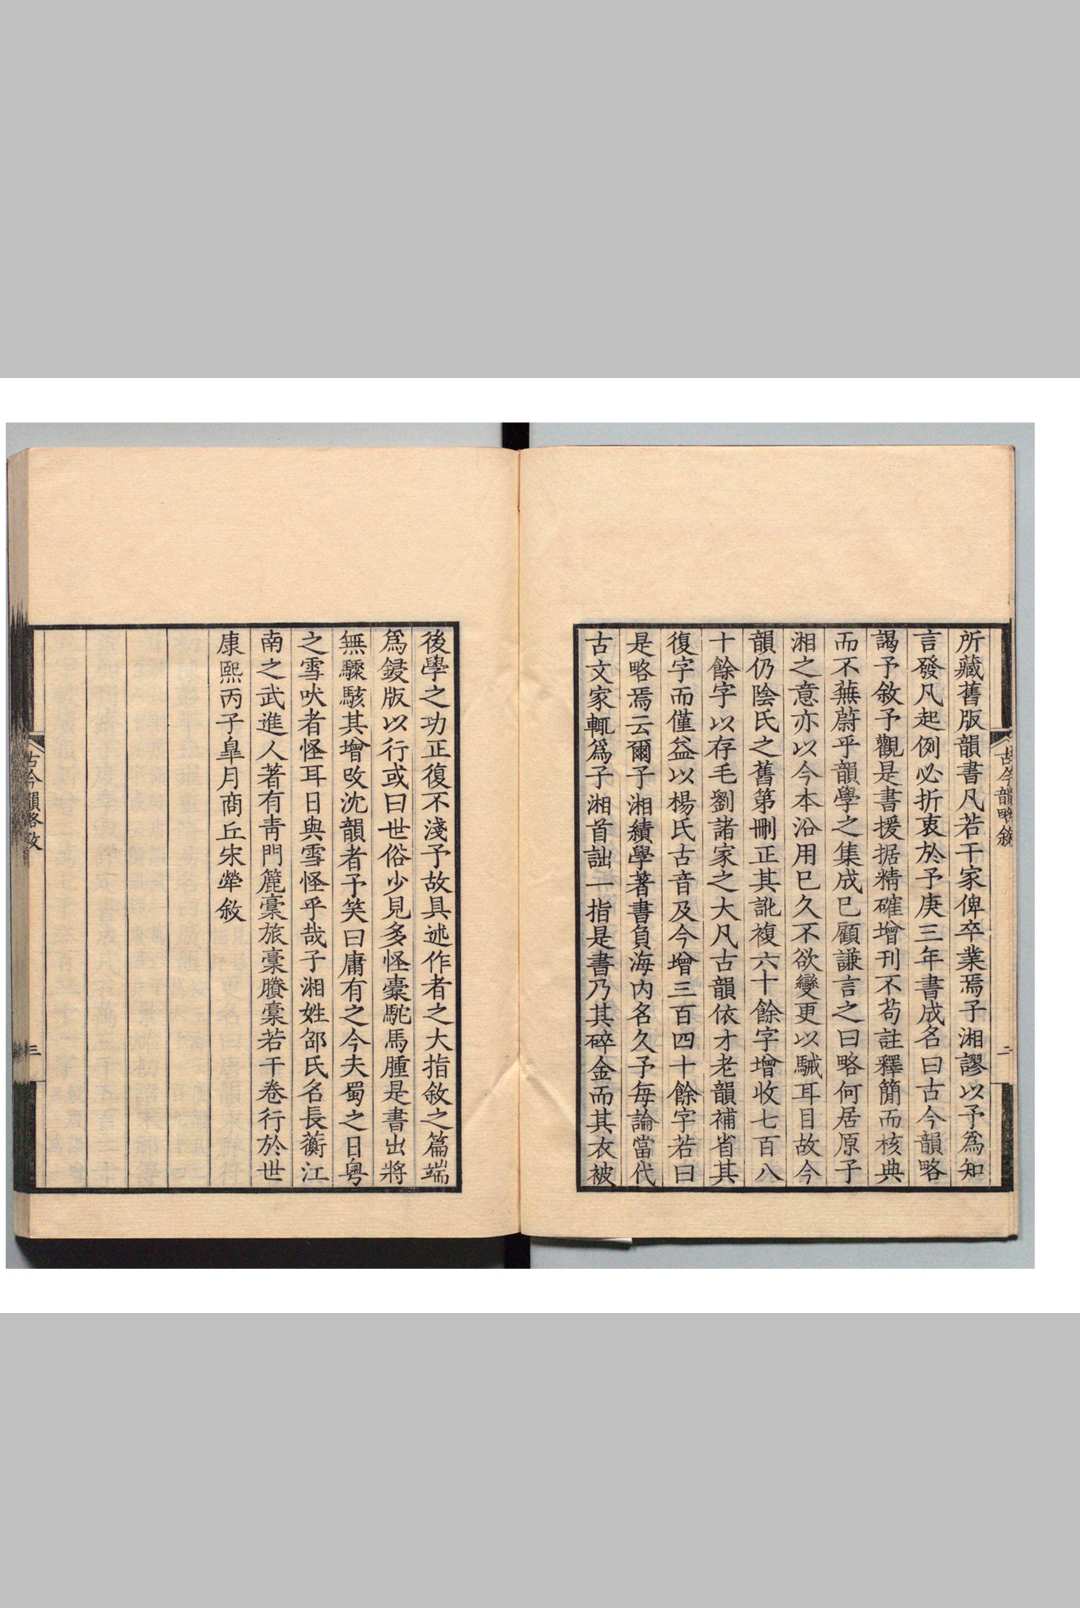 古今韻略敘
二
所藏舊版韻書凡若干家俾卒業焉子湘謬以予為知
言發凡起例必折衷於予庚三年書成名曰古今韻略
謁予敘予觀是書援据精確增刊不苟註釋簡而核典
而不蕪蔚乎韻學之集成已顧謙言之曰略何居原子
湘之意亦以今本沿用已久不欲變更以駴耳目故今
韻仍陰氏之舊第刪正其訛複六十餘字增收七百八
十餘字以存毛劉諸家之大凡古韻依才老韻補省其
復字而僅益以楊氏古音及今增三百四十餘字若曰
是略焉云爾子湘績學著書負海内名久予每論當代
古文家輒為子湘首詘一指是書乃其碎金而其衣被
後學之功正復不淺予故具述作者之大指敘之篇端
為鋟版以行或曰世俗少見多怪橐駝馬腫是書出將
無驟駭其增攺沈韻者予笑曰庸有之今夫蜀之日粵
之雪吠者怪耳日與雪怪乎哉子湘姓邵氏名長蘅江
南之武進人著有青門簏稾旅稾賸稾若干卷行於世
康熙丙子皐月商丘宋犖敘
古今韻略敘
三